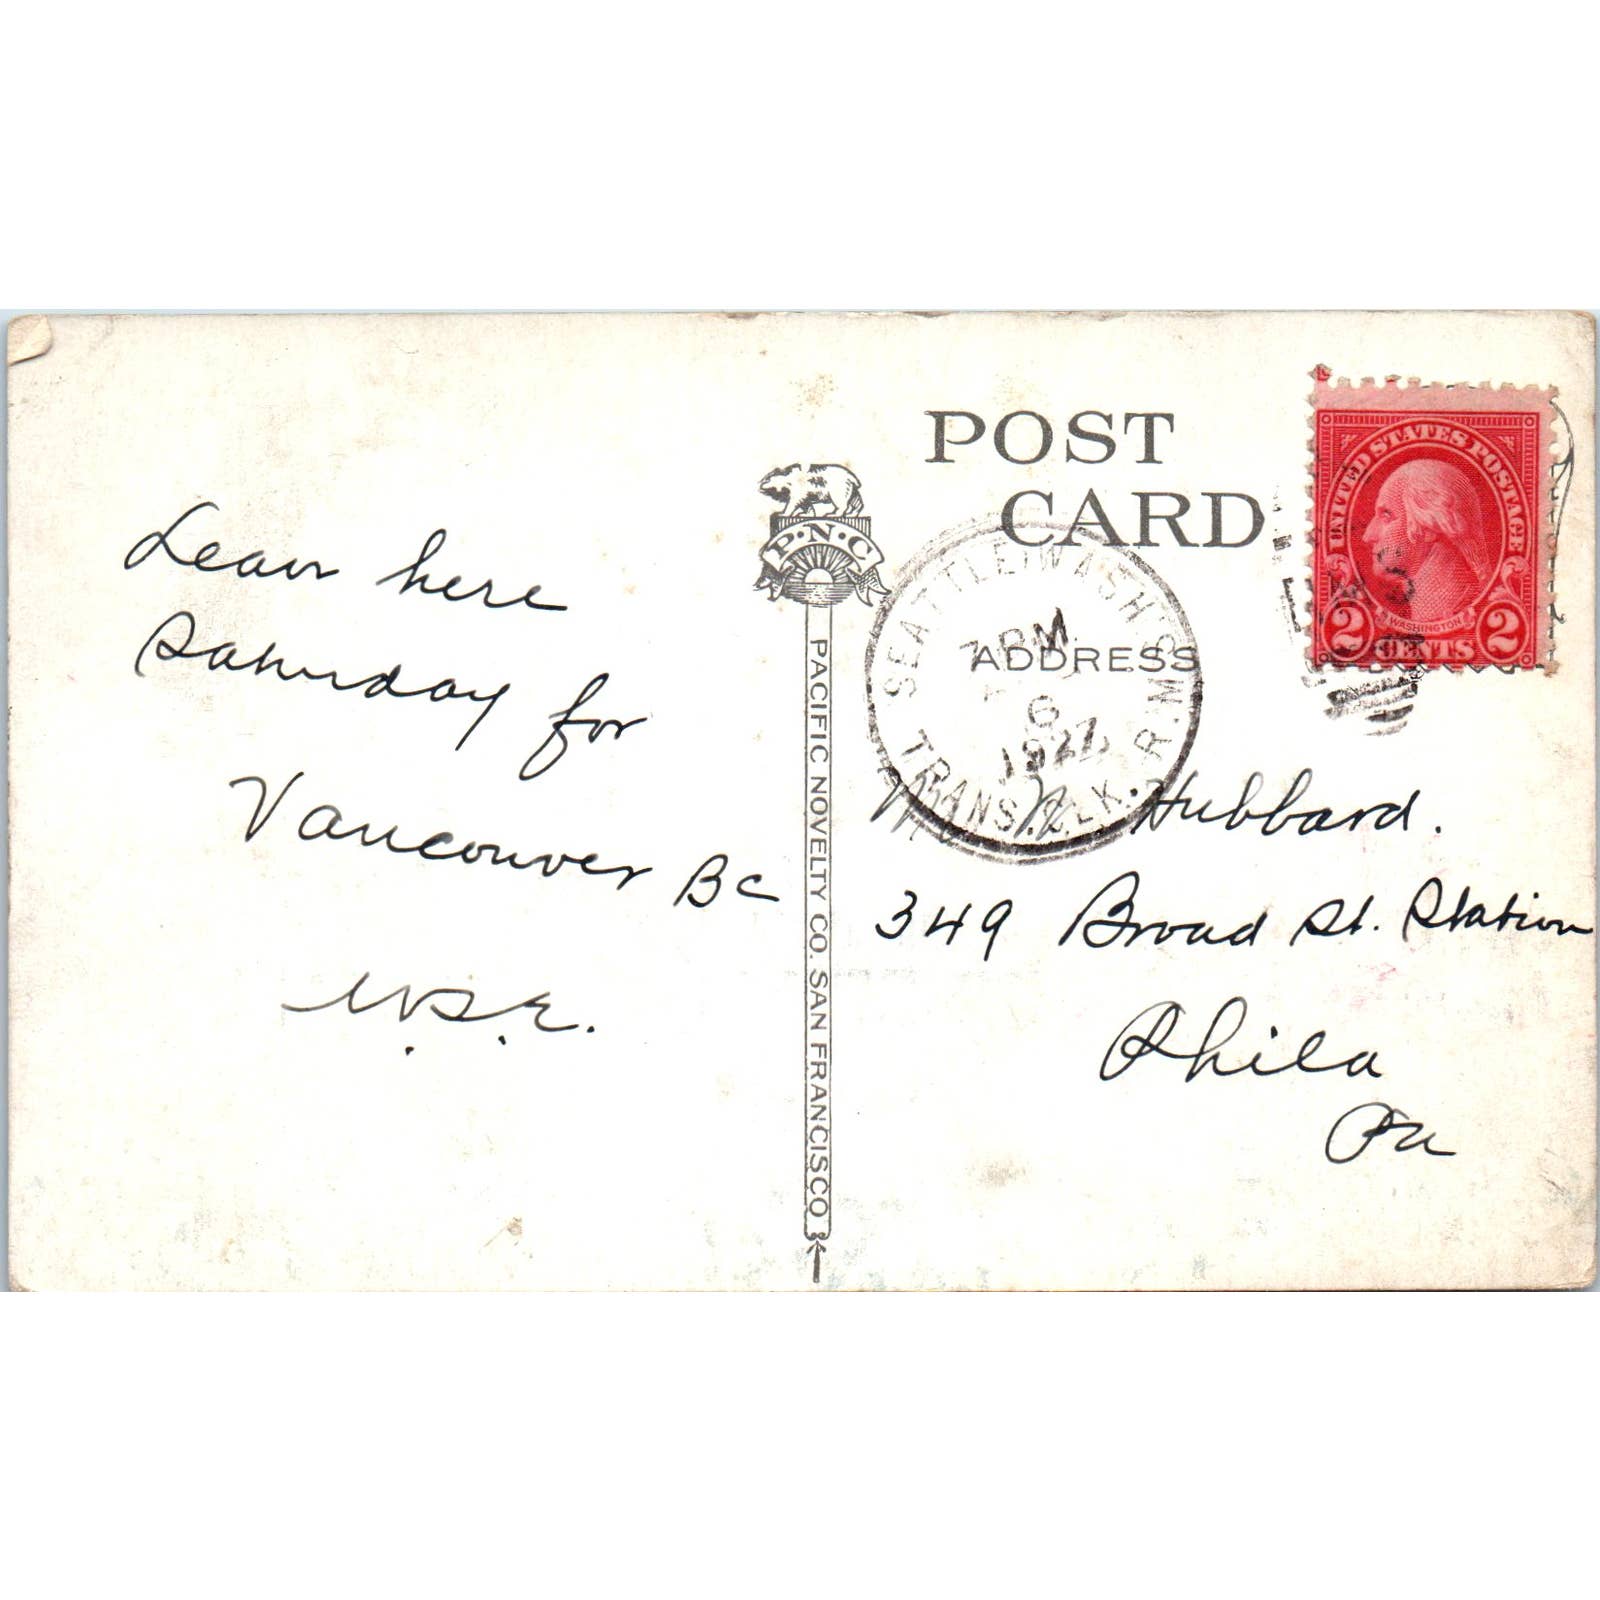 Leave here
Saturday for
Vancouver BC
POST
CARD
P·N·C
PACIFIC NOVELTY CO. SAN FRANCISCO
ADDRESS
SEATTLE, WASH'S
7 PM
6
1927
TRANS. CLK. R.M.S
UNITED STATES POSTAGE
WASHINGTON
2 CENTS 2
Hubbard.
349 Broad St. Station
Phila
Pa